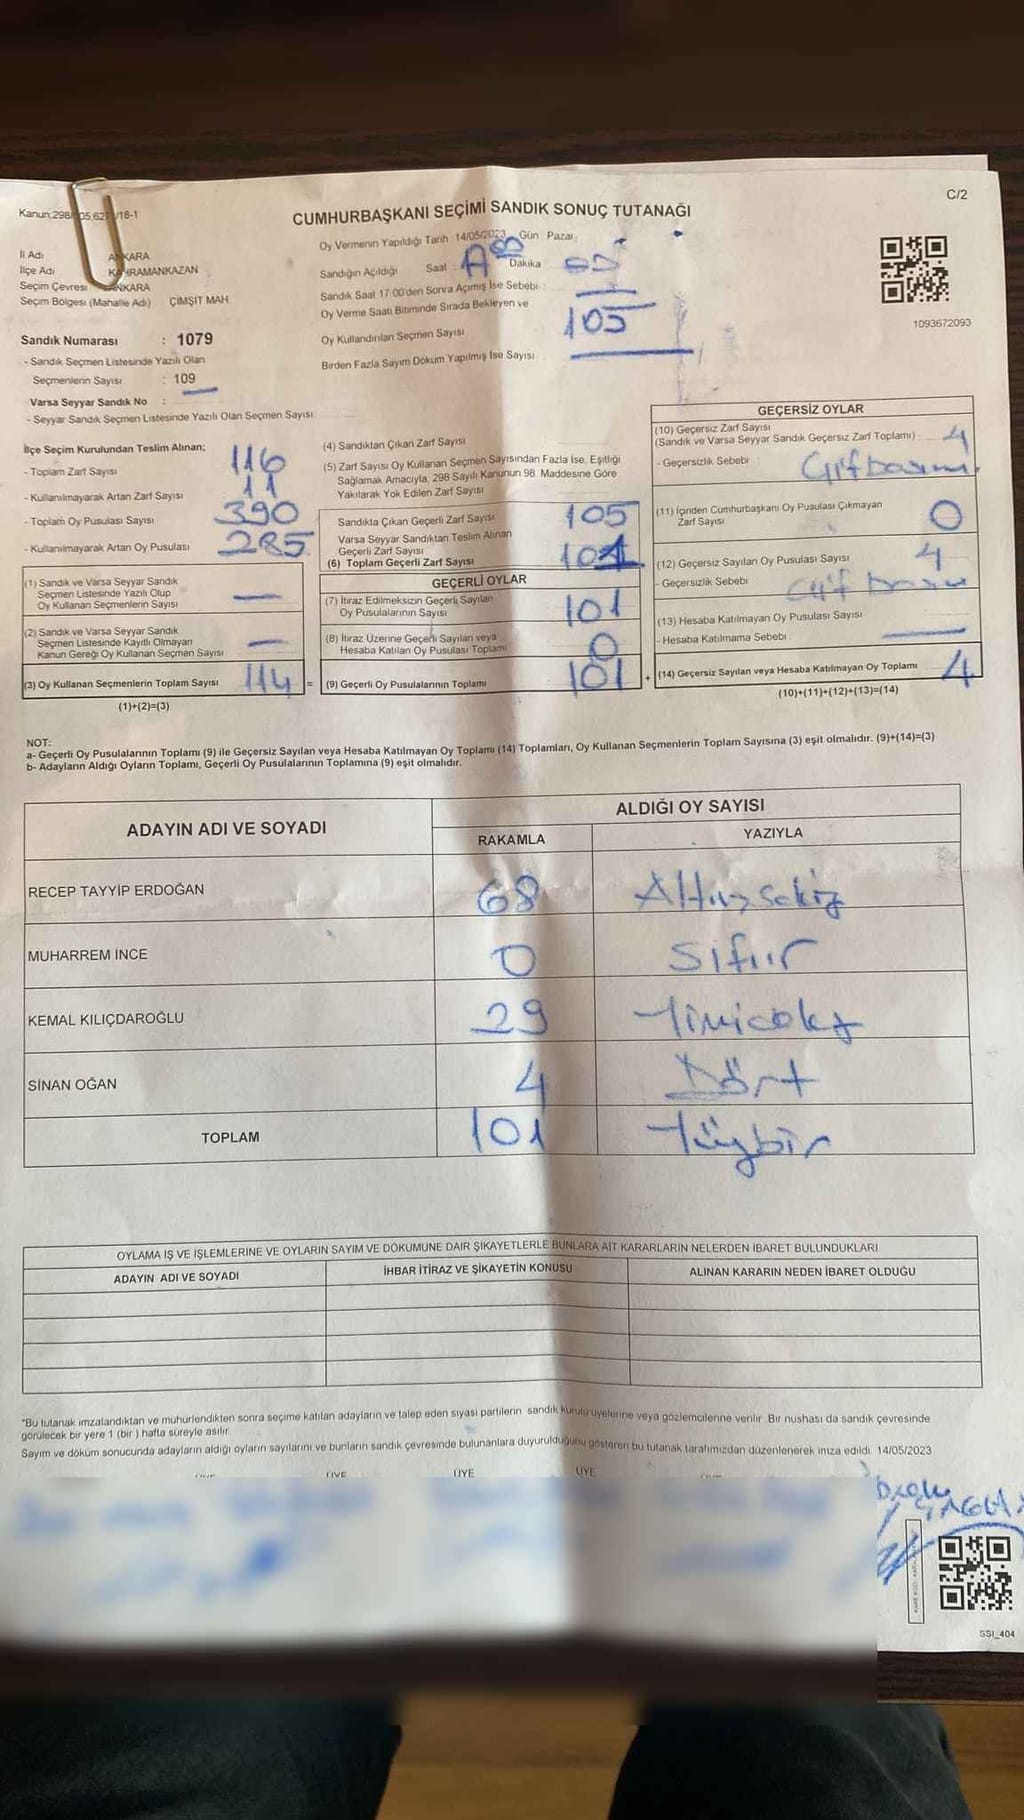 C/2
Kanun:298/ /18-1
CUMHURBAŞKANI SEÇİMİ SANDIK SONUÇ TUTANAĞI
İl Adı ANKARA
İlçe Adı KAHRAMANKAZAN
Seçim Çevresi ANKARA
Seçim Bölgesi (Mahalle Adı) ÇİMŞİT MAH
Oy Vermenin Yapıldığı Tarih 14/05/2023 Gün Pazar
Sandığın Açıldığı Saat : Dakika
Sandık Saat 17.00'den Sonra Açımış İse Sebebi :
Oy Verme Saati Bitiminde Sırada Bekleyen ve
Oy Kullandırılan Seçmen Sayısı 105
Birden Fazla Sayım Döküm Yapılmış İse Sayısı
1093672093
Sandık Numarası : 1079
- Sandık Seçmen Listesinde Yazılı Olan
Seçmenlerin Sayısı : 109
Varsa Seyyar Sandık No :
- Seyyar Sandık Seçmen Listesinde Yazılı Olan Seçmen Sayısı:
İlçe Seçim Kurulundan Teslim Alınan;
- Toplam Zarf Sayısı 116
- Kullanılmayarak Artan Zarf Sayısı 11
- Toplam Oy Pusulası Sayısı 390
- Kullanılmayarak Artan Oy Pusulası 285
(1) Sandık ve Varsa Seyyar Sandık
Seçmen Listesinde Yazılı Olup
Oy Kullanan Seçmenlerin Sayısı —
(2) Sandık ve Varsa Seyyar Sandık
Seçmen Listesinde Kayıtlı Olmayan
Kanun Gereği Oy Kullanan Seçmen Sayısı —
(3) Oy Kullanan Seçmenlerin Toplam Sayısı 114 =
(1)+(2)=(3)
(4) Sandıktan Çıkan Zarf Sayısı
(5) Zarf Sayısı Oy Kullanan Seçmen Sayısından Fazla İse, Eşitliği
Sağlamak Amacıyla, 298 Sayılı Kanunun 98. Maddesine Göre
Yakılarak Yok Edilen Zarf Sayısı
Sandıkta Çıkan Geçerli Zarf Sayısı 105
Varsa Seyyar Sandıktan Teslim Alınan
Geçerli Zarf Sayısı
(6) Toplam Geçerli Zarf Sayısı 101
GEÇERLİ OYLAR
(7) İtiraz Edilmeksizin Geçerli Sayılan
Oy Pusulalarının Sayısı 101
(8) İtiraz Üzerine Geçerli Sayılan veya
Hesaba Katılan Oy Pusulası Toplamı 0
(9) Geçerli Oy Pusulalarının Toplamı 101 +
GEÇERSİZ OYLAR
(10) Geçersiz Zarf Sayısı
(Sandık ve Varsa Seyyar Sandık Geçersiz Zarf Toplamı) : 4
- Geçersizlik Sebebi : Çift basım
(11) İçinden Cumhurbaşkanı Oy Pusulası Çıkmayan
Zarf Sayısı 0
(12) Geçersiz Sayılan Oy Pusulası Sayısı 4
- Geçersizlik Sebebi Çift basım
(13) Hesaba Katılmayan Oy Pusulası Sayısı
- Hesaba Katılmama Sebebi —
(14) Geçersiz Sayılan veya Hesaba Katılmayan Oy Toplamı 4
(10)+(11)+(12)+(13)=(14)
NOT:
a- Geçerli Oy Pusulalarının Toplamı (9) ile Geçersiz Sayılan veya Hesaba Katılmayan Oy Toplamı (14) Toplamları, Oy Kullanan Seçmenlerin Toplam Sayısına (3) eşit olmalıdır. (9)+(14)=(3)
b- Adayların Aldığı Oyların Toplamı, Geçerli Oy Pusulalarının Toplamına (9) eşit olmalıdır.
ADAYIN ADI VE SOYADI ALDIĞI OY SAYISI
RAKAMLA YAZIYLA
RECEP TAYYİP ERDOĞAN 68 Altmışsekiz
MUHARREM İNCE 0 Sıfır
KEMAL KILIÇDAROĞLU 29 Yirmidokuz
SİNAN OĞAN 4 Dört
TOPLAM 101 Yüzbir
OYLAMA İŞ VE İŞLEMLERİNE VE OYLARIN SAYIM VE DÖKÜMÜNE DAİR ŞİKAYETLERLE BUNLARA AİT KARARLARIN NELERDEN İBARET BULUNDUKLARI
ADAYIN ADI VE SOYADI İHBAR İTİRAZ VE ŞİKAYETİN KONUSU ALINAN KARARIN NEDEN İBARET OLDUĞU
*Bu tutanak imzalandıktan ve mühürlendikten sonra seçime katılan adayların ve talep eden siyasi partilerin sandık kurulu üyelerine veya gözlemcilerine verilir. Bir nüshası da sandık çevresinde
görülecek bir yere 1 (bir) hafta süreyle asılır.
Sayım ve döküm sonucunda adayların aldığı oyların sayılarını ve bunların sandık çevresinde bulunanlara duyurulduğunu gösteren bu tutanak tarafımızdan düzenlenerek imza edildi. 14/05/2023
ÜYE ÜYE ÜYE ÜYE
SSI_404